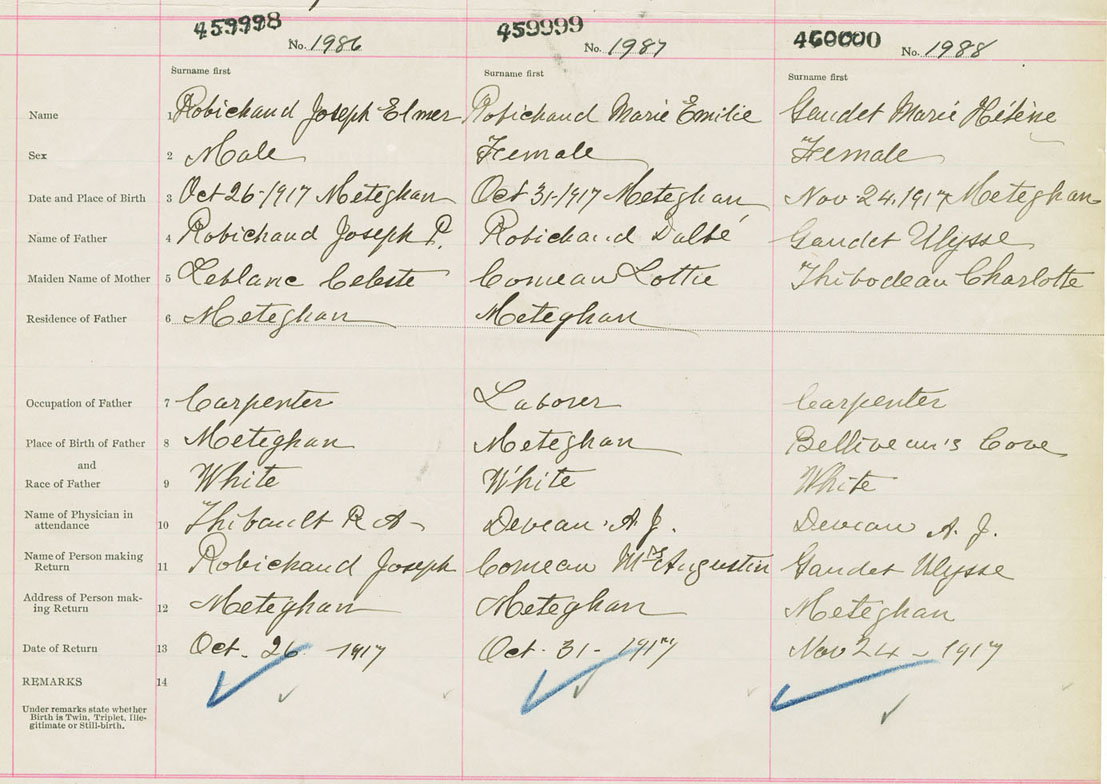 459998 459999 460000
No. 1986 No. 1987 No. 1988
Surname first Surname first Surname first
Name 1 Robichaud Joseph Elmer Robichaud Marie Emilie Gaudet Marie Hélène
Sex 2 Male Female Female
Date and Place of Birth 3 Oct 26-1917 Meteghan Oct 31-1917 Meteghan Nov 24, 1917 Meteghan
Name of Father 4 Robichaud Joseph P. Robichaud Dalbé Gaudet Ulysse
Maiden Name of Mother 5 Leblanc Celeste Comeau Lottie Thibodeau Charlotte
Residence of Father 6 Meteghan Meteghan
Occupation of Father 7 Carpenter Laborer Carpenter
Place of Birth of Father 8 Meteghan Meteghan Belliveau's Cove
and
Race of Father 9 White White White
Name of Physician in
attendance 10 Thibault P. A- Deveau A. J. Deveau A. J.
Name of Person making
Return 11 Robichaud Joseph Comeau Mrs Augustin Gaudet Ulysse
Address of Person mak-
ing Return 12 Meteghan Meteghan Meteghan
Date of Return 13 Oct. 26 1917 Oct. 31- 1917 Nov 24 - 1917
REMARKS 14
Under remarks state whether
Birth is Twin, Triplet, Ille-
gitimate or Still-birth.